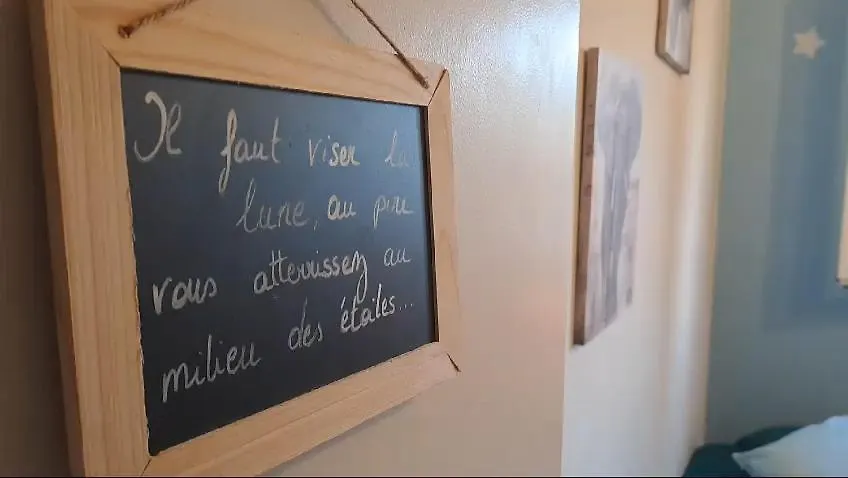 Il faut viser la
lune, au pire
vous atterrissez au
milieu des étoiles...